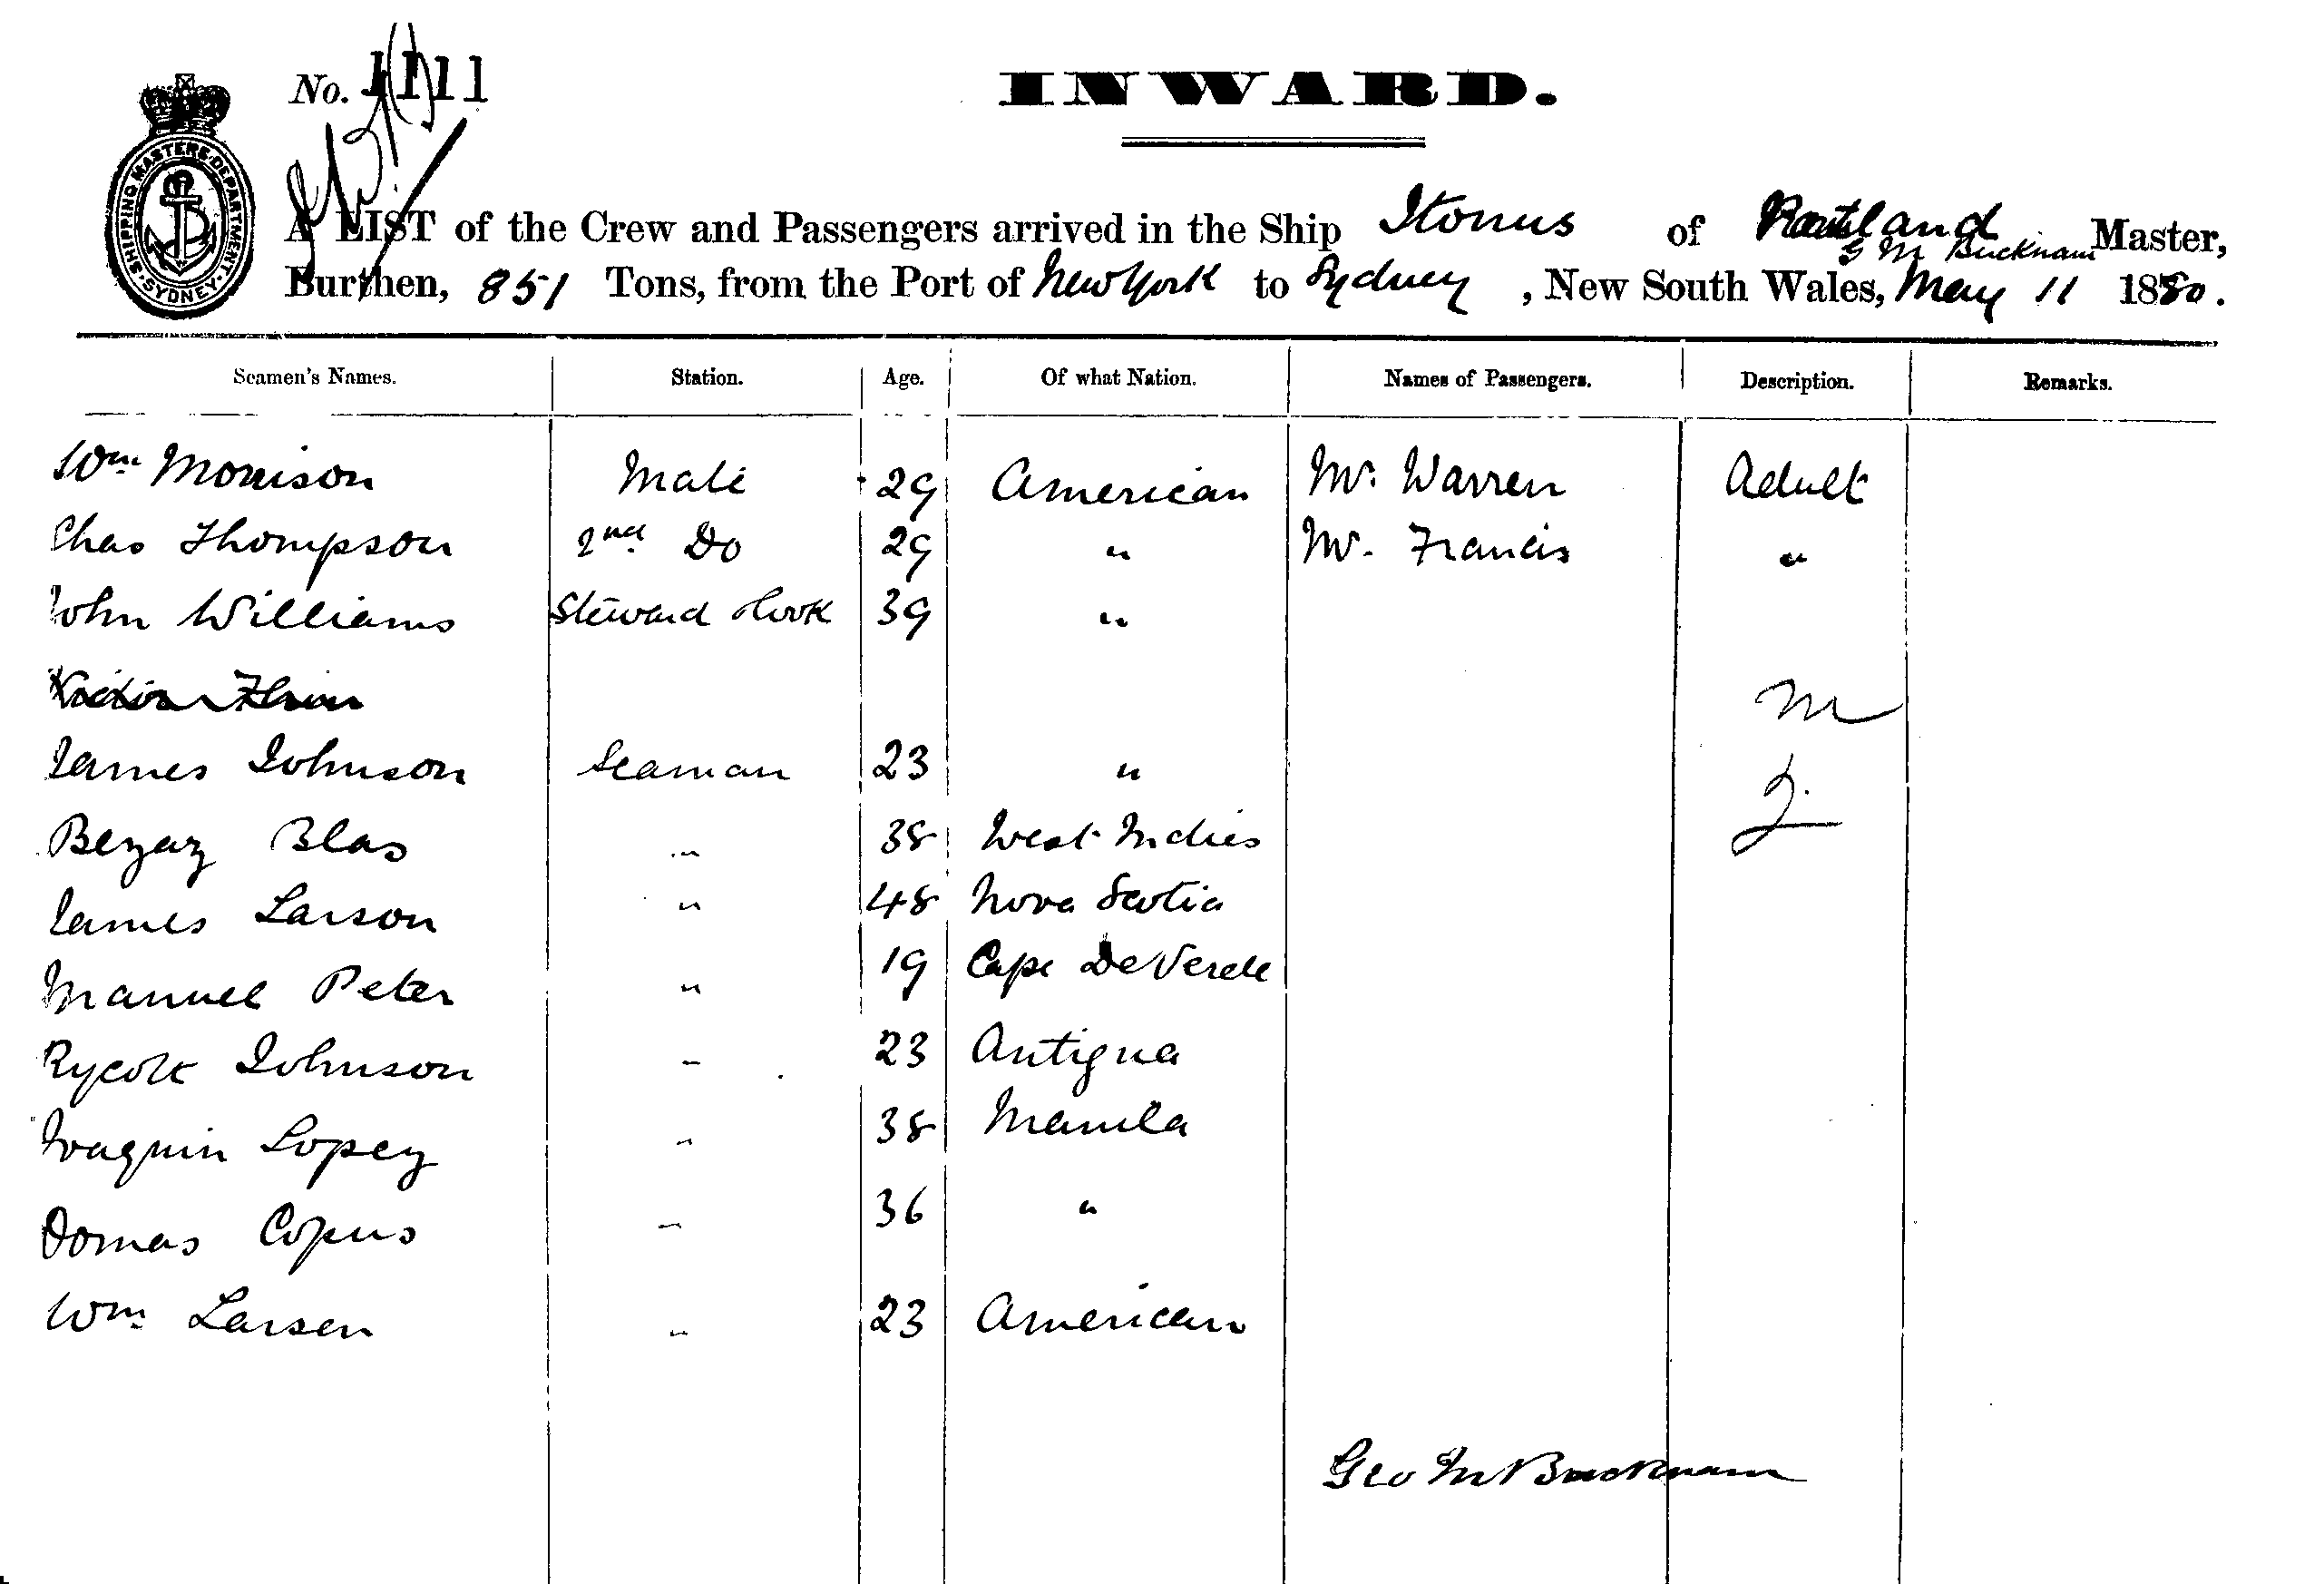 No. 1111
INWARD.
SHIPPING MASTERS DEPARTMENT SYDNEY
A LIST of the Crew and Passengers arrived in the Ship Itonus of Portland G M Bucknam Master,
Burthen, 851 Tons, from the Port of New York to Sydney, New South Wales, May 11 1880.
Seamen's Names. Station. Age. Of what Nation. Names of Passengers. Description. Remarks.
Wm Morrison Mate 29 American Mr. Warren Adult
Chas Thompson 2nd Do 29 " Mr. Francis "
John Williams Steward & Cook 39 "
James Johnson Seaman 23 "
Bezaz Blas " 38 West Indies
James Larson " 48 Nova Scotia
Manuel Peter " 19 Cape De Verde
Rycolt Johnson " 23 Antigua
Joaquin Lopez " 38 Manila
Domas Copus " 36 "
Wm Larsen " 23 American
Geo M Bucknam